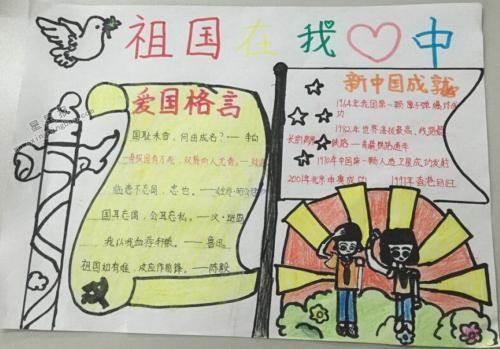 祖国在我中
爱国格言
国耻未雪，何由成名？——李白
临患不忘国，忠也。——
国耳忘家，公耳忘私。——汉·
我以我血荐轩辕。——鲁迅
祖国如有难，汝应作前锋。——陈毅
新中国成就
1964年我国第一颗原子弹爆炸成功
年世界海拔最高、线路最
长的高原铁路——青藏铁路通车
1970年中国第一颗人造卫星成功发射
2001年北京申奥成功 1997年香港回归